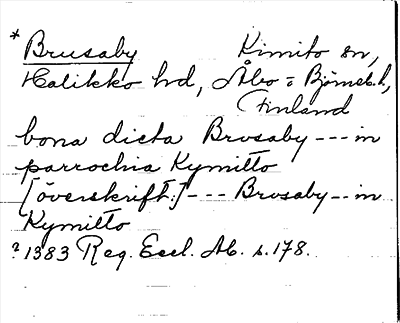 * Brusaby Kimito sn,
Halikko hd, Åbo o Björneb. l,
Finland
bona dicta Brusaby --- in
parrochia Kymitto
[överskrift:] --- Brusaby -- in
Kymitto
? 1383 Reg. Eccl. Ab. s. 178.